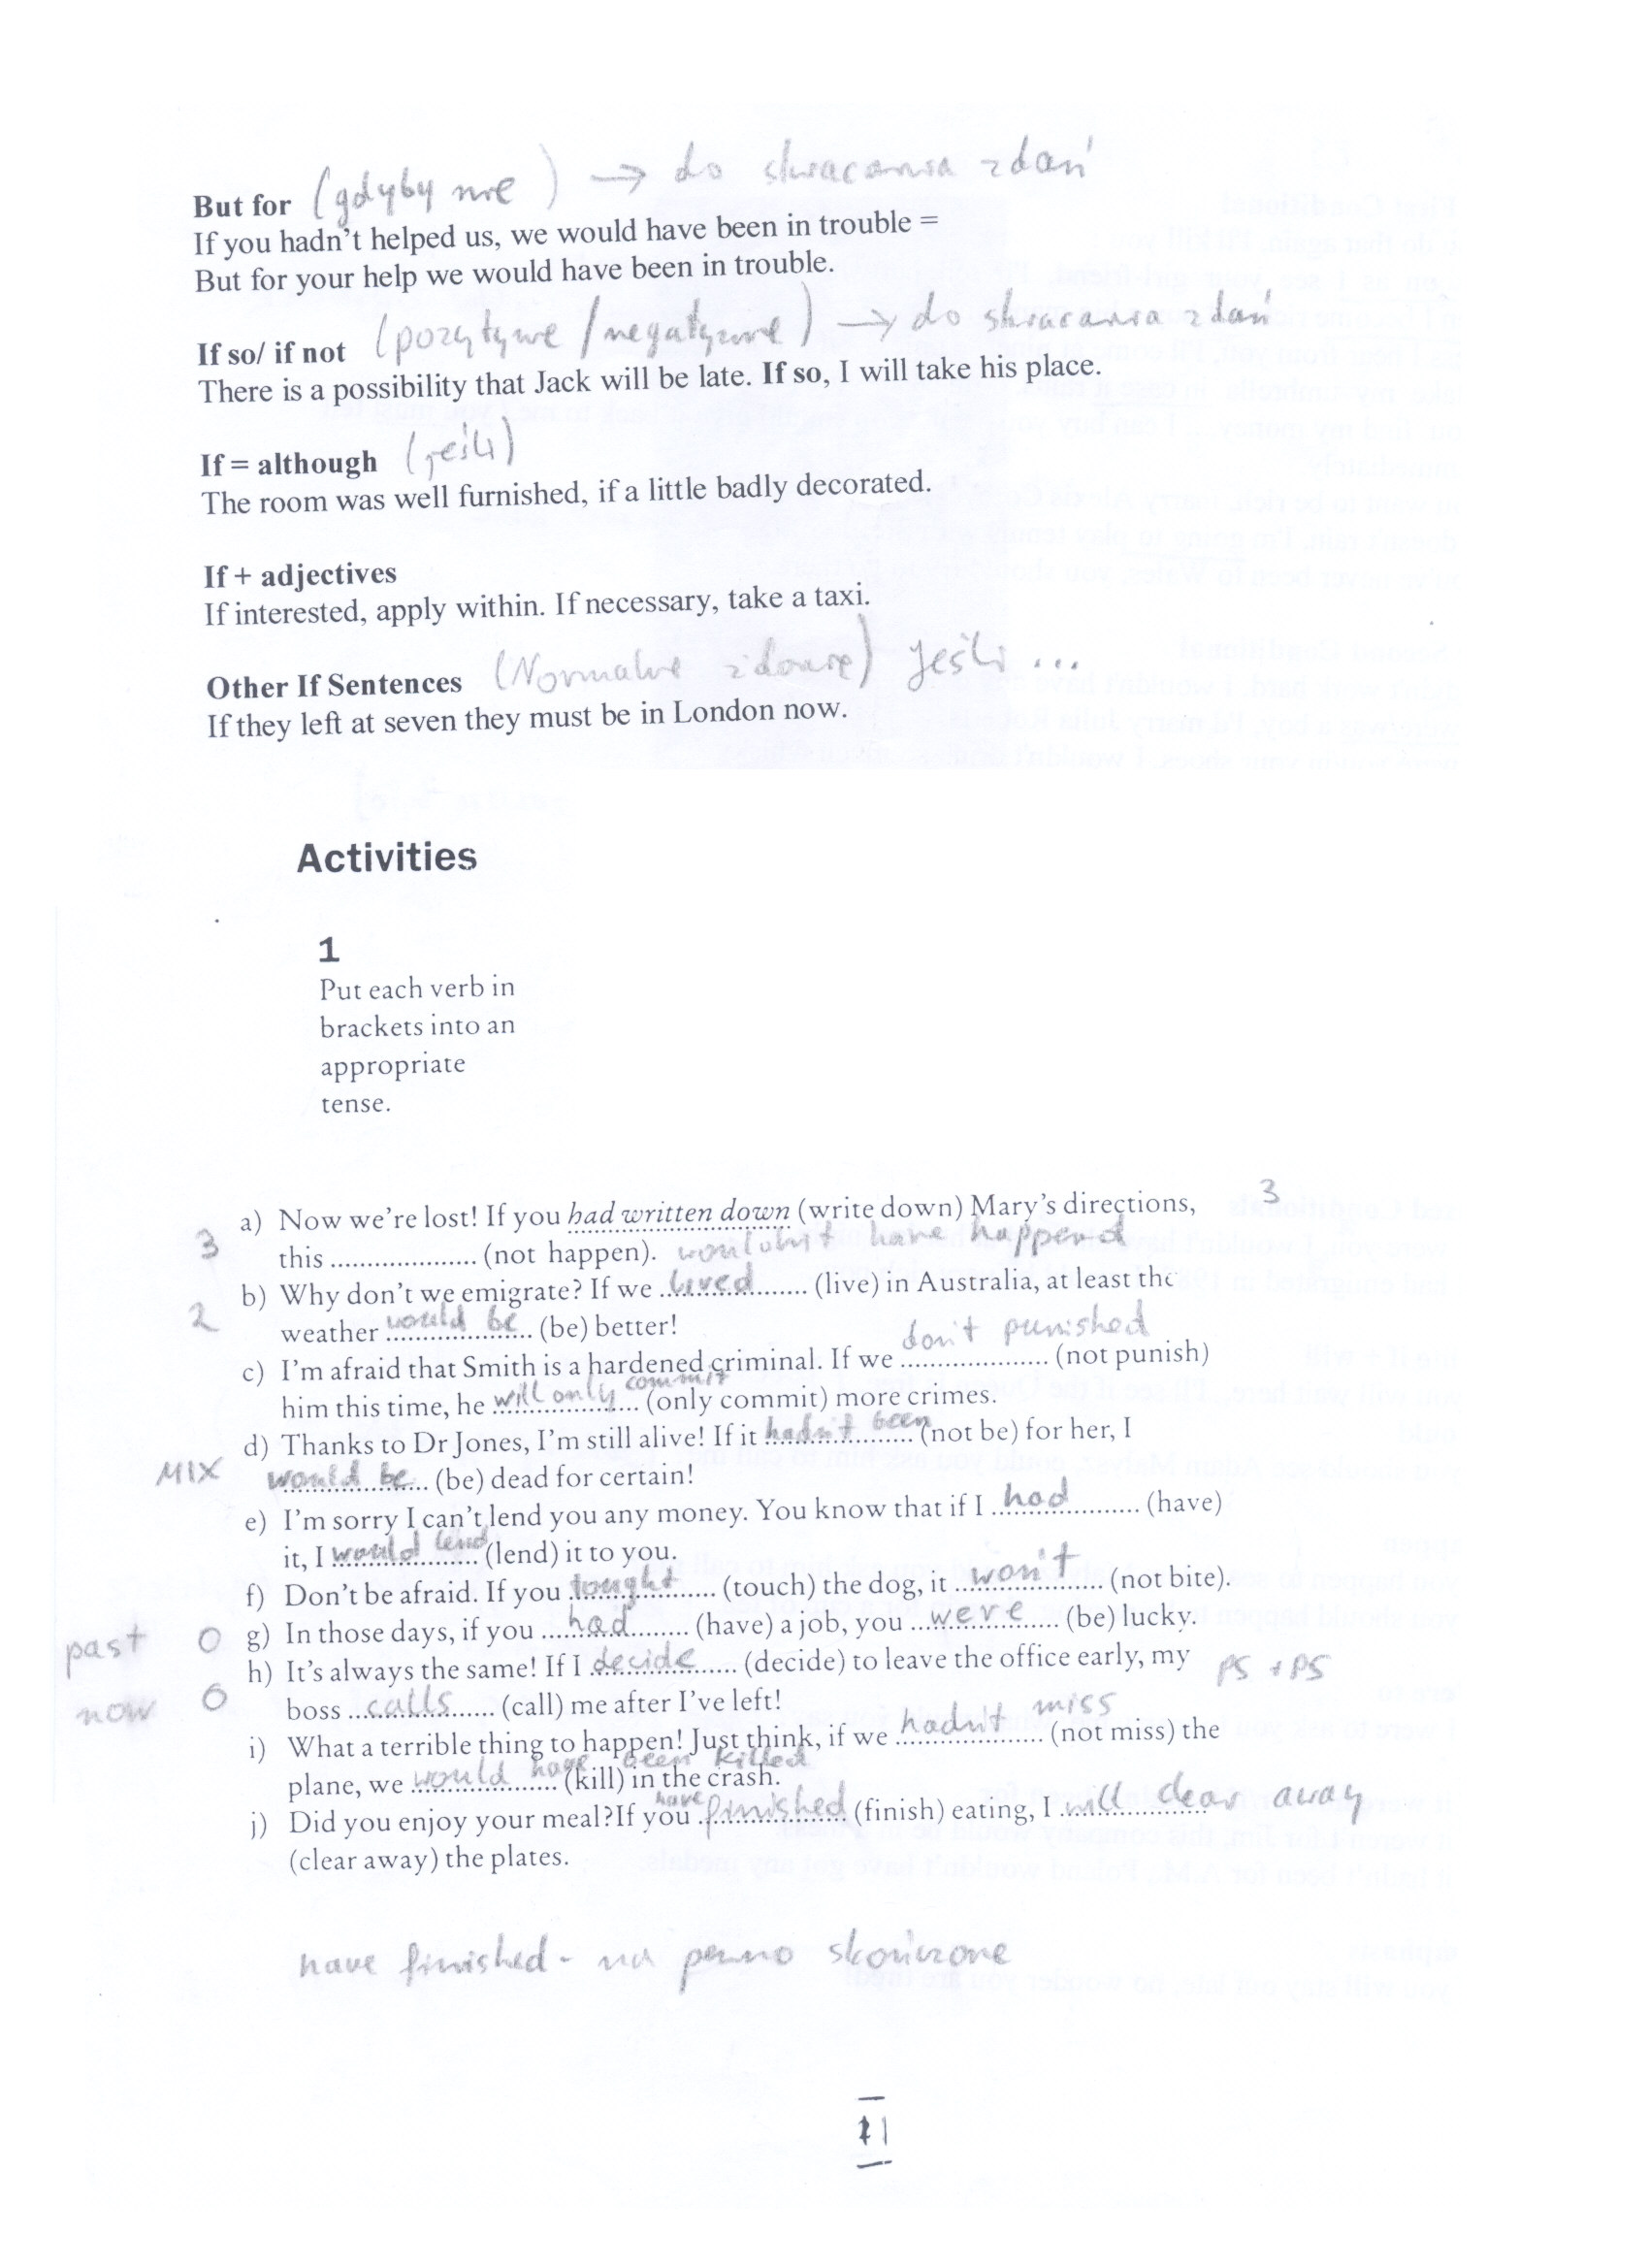 But for (gdyby nie) → do skracania zdań
If you hadn't helped us, we would have been in trouble =
But for your help we would have been in trouble.
If so/ if not (pozytywne / negatywne) → do skracania zdań
There is a possibility that Jack will be late. If so, I will take his place.
If = although (jeśli)
The room was well furnished, if a little badly decorated.
If + adjectives
If interested, apply within. If necessary, take a taxi.
Other If Sentences (Normalne zdanie) Jeśli ...
If they left at seven they must be in London now.
Activities
1
Put each verb in
brackets into an
appropriate
tense.
a) Now we're lost! If you had written down (write down) Mary's directions, 3
3 this .................. (not happen). wouldn't have happend
b) Why don't we emigrate? If we lived (live) in Australia, at least the
2 weather would be (be) better!
c) I'm afraid that Smith is a hardened criminal. If we don't punished (not punish)
him this time, he will only commit (only commit) more crimes.
d) Thanks to Dr Jones, I'm still alive! If it hadn't been (not be) for her, I
MIX would be (be) dead for certain!
e) I'm sorry I can't lend you any money. You know that if I had (have)
it, I would lend (lend) it to you.
f) Don't be afraid. If you tought (touch) the dog, it won't (not bite).
past 0 g) In those days, if you had (have) a job, you were (be) lucky.
h) It's always the same! If I decide (decide) to leave the office early, my PS + PS
now 0 boss calls (call) me after I've left!
i) What a terrible thing to happen! Just think, if we hadn't miss (not miss) the
plane, we would have been killed (kill) in the crash.
j) Did you enjoy your meal?If you have finished (finish) eating, I will clear away
(clear away) the plates.
have finished - na pewno skończone